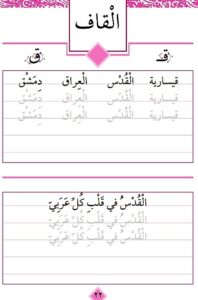 الْقاف
قـ ق
قيسارية الْقُدْس الْعِراق دِمَشْق
قيسارية الْقُدْس الْعِراق دِمَشْق
قيسارية الْقُدْس الْعِراق دِمَشْق
الْقُدْسُ في قَلْبِ كُلِّ عَرَبِيّ
الْقُدْسُ في قَلْبِ كُلِّ عَرَبِيّ
الْقُدْسُ في قَلْبِ كُلِّ عَرَبِيّ
٢٢